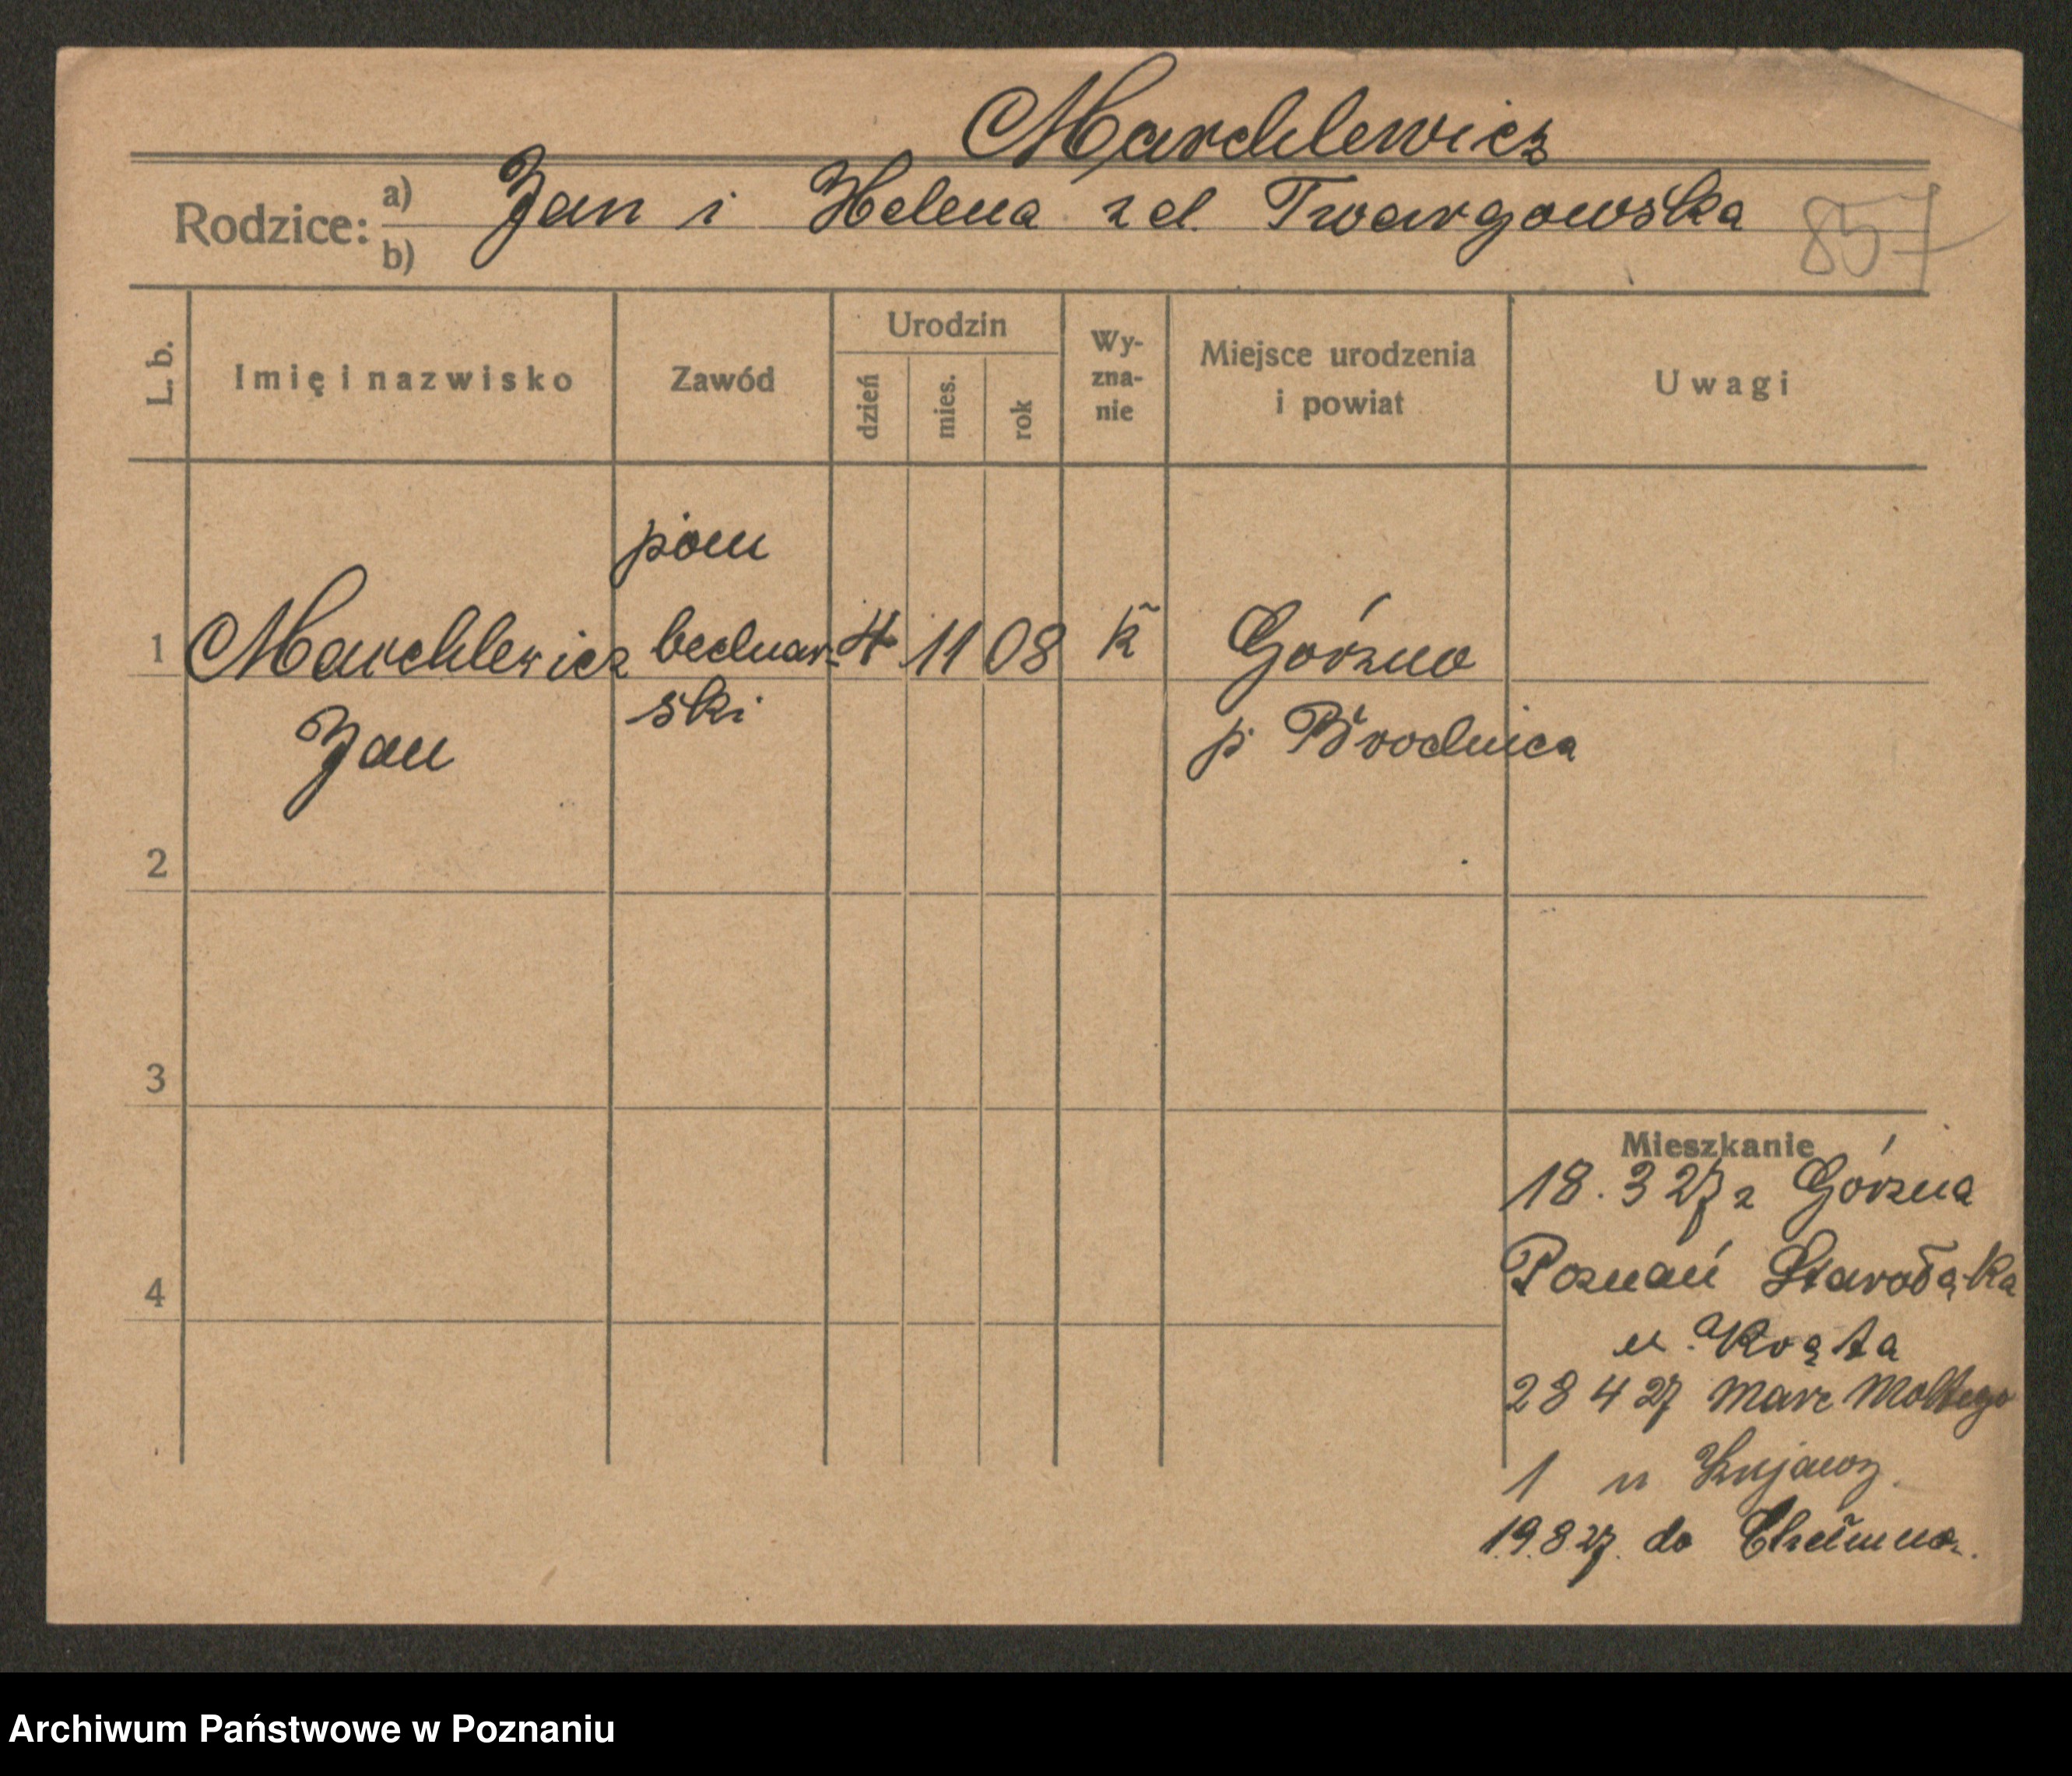 Marchlewicz
Rodzice: a) b) Jan i Helena z d. Twargowska
857
L. b.
Imię i nazwisko
Zawód
Urodzin
dzień
mies.
rok
Wy-
zna-
nie
Miejsce urodzenia
i powiat
Uwagi
pom
1 Marchlewicz bednar- 4 11 08 k Górzno
Jan ski p Brodnica
2
3
4
Mieszkanie
18. 3 27 z Górzna
Poznań Starołęka
u Krąta
28 4 27 Marc Mottego
1 u Kujawy
19. 8 27. do Chełmna.
Archiwum Państwowe w Poznaniu